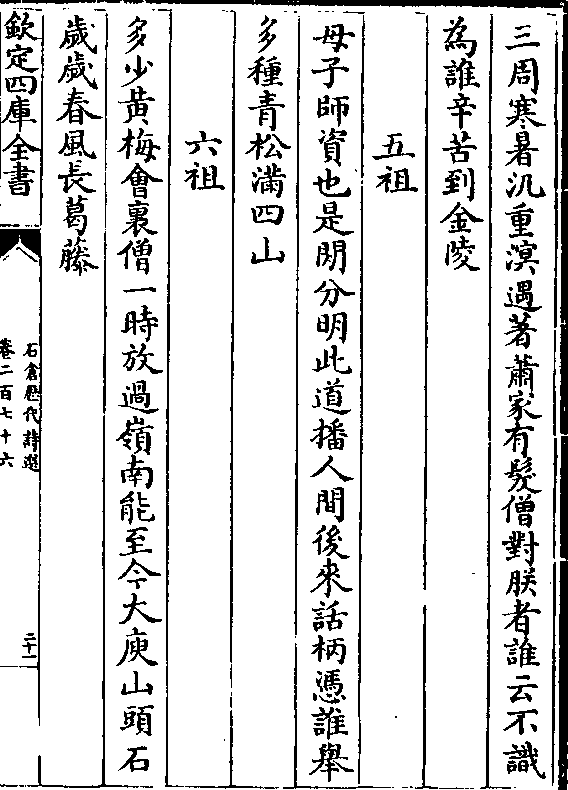 三周寒暑汎重溟遇著蕭家有髮僧對朕者誰云不識
為誰辛苦到金陵
五祖
母子師資也是閒分明此道播人間後來話柄憑誰舉
多種青松滿四山
六祖
多少黃梅會裏僧一時放過嶺南能至今大庾山頭石
歲歲春風長葛藤
欽定四庫全書
石倉歷代詩選
卷二百七十六
二十一